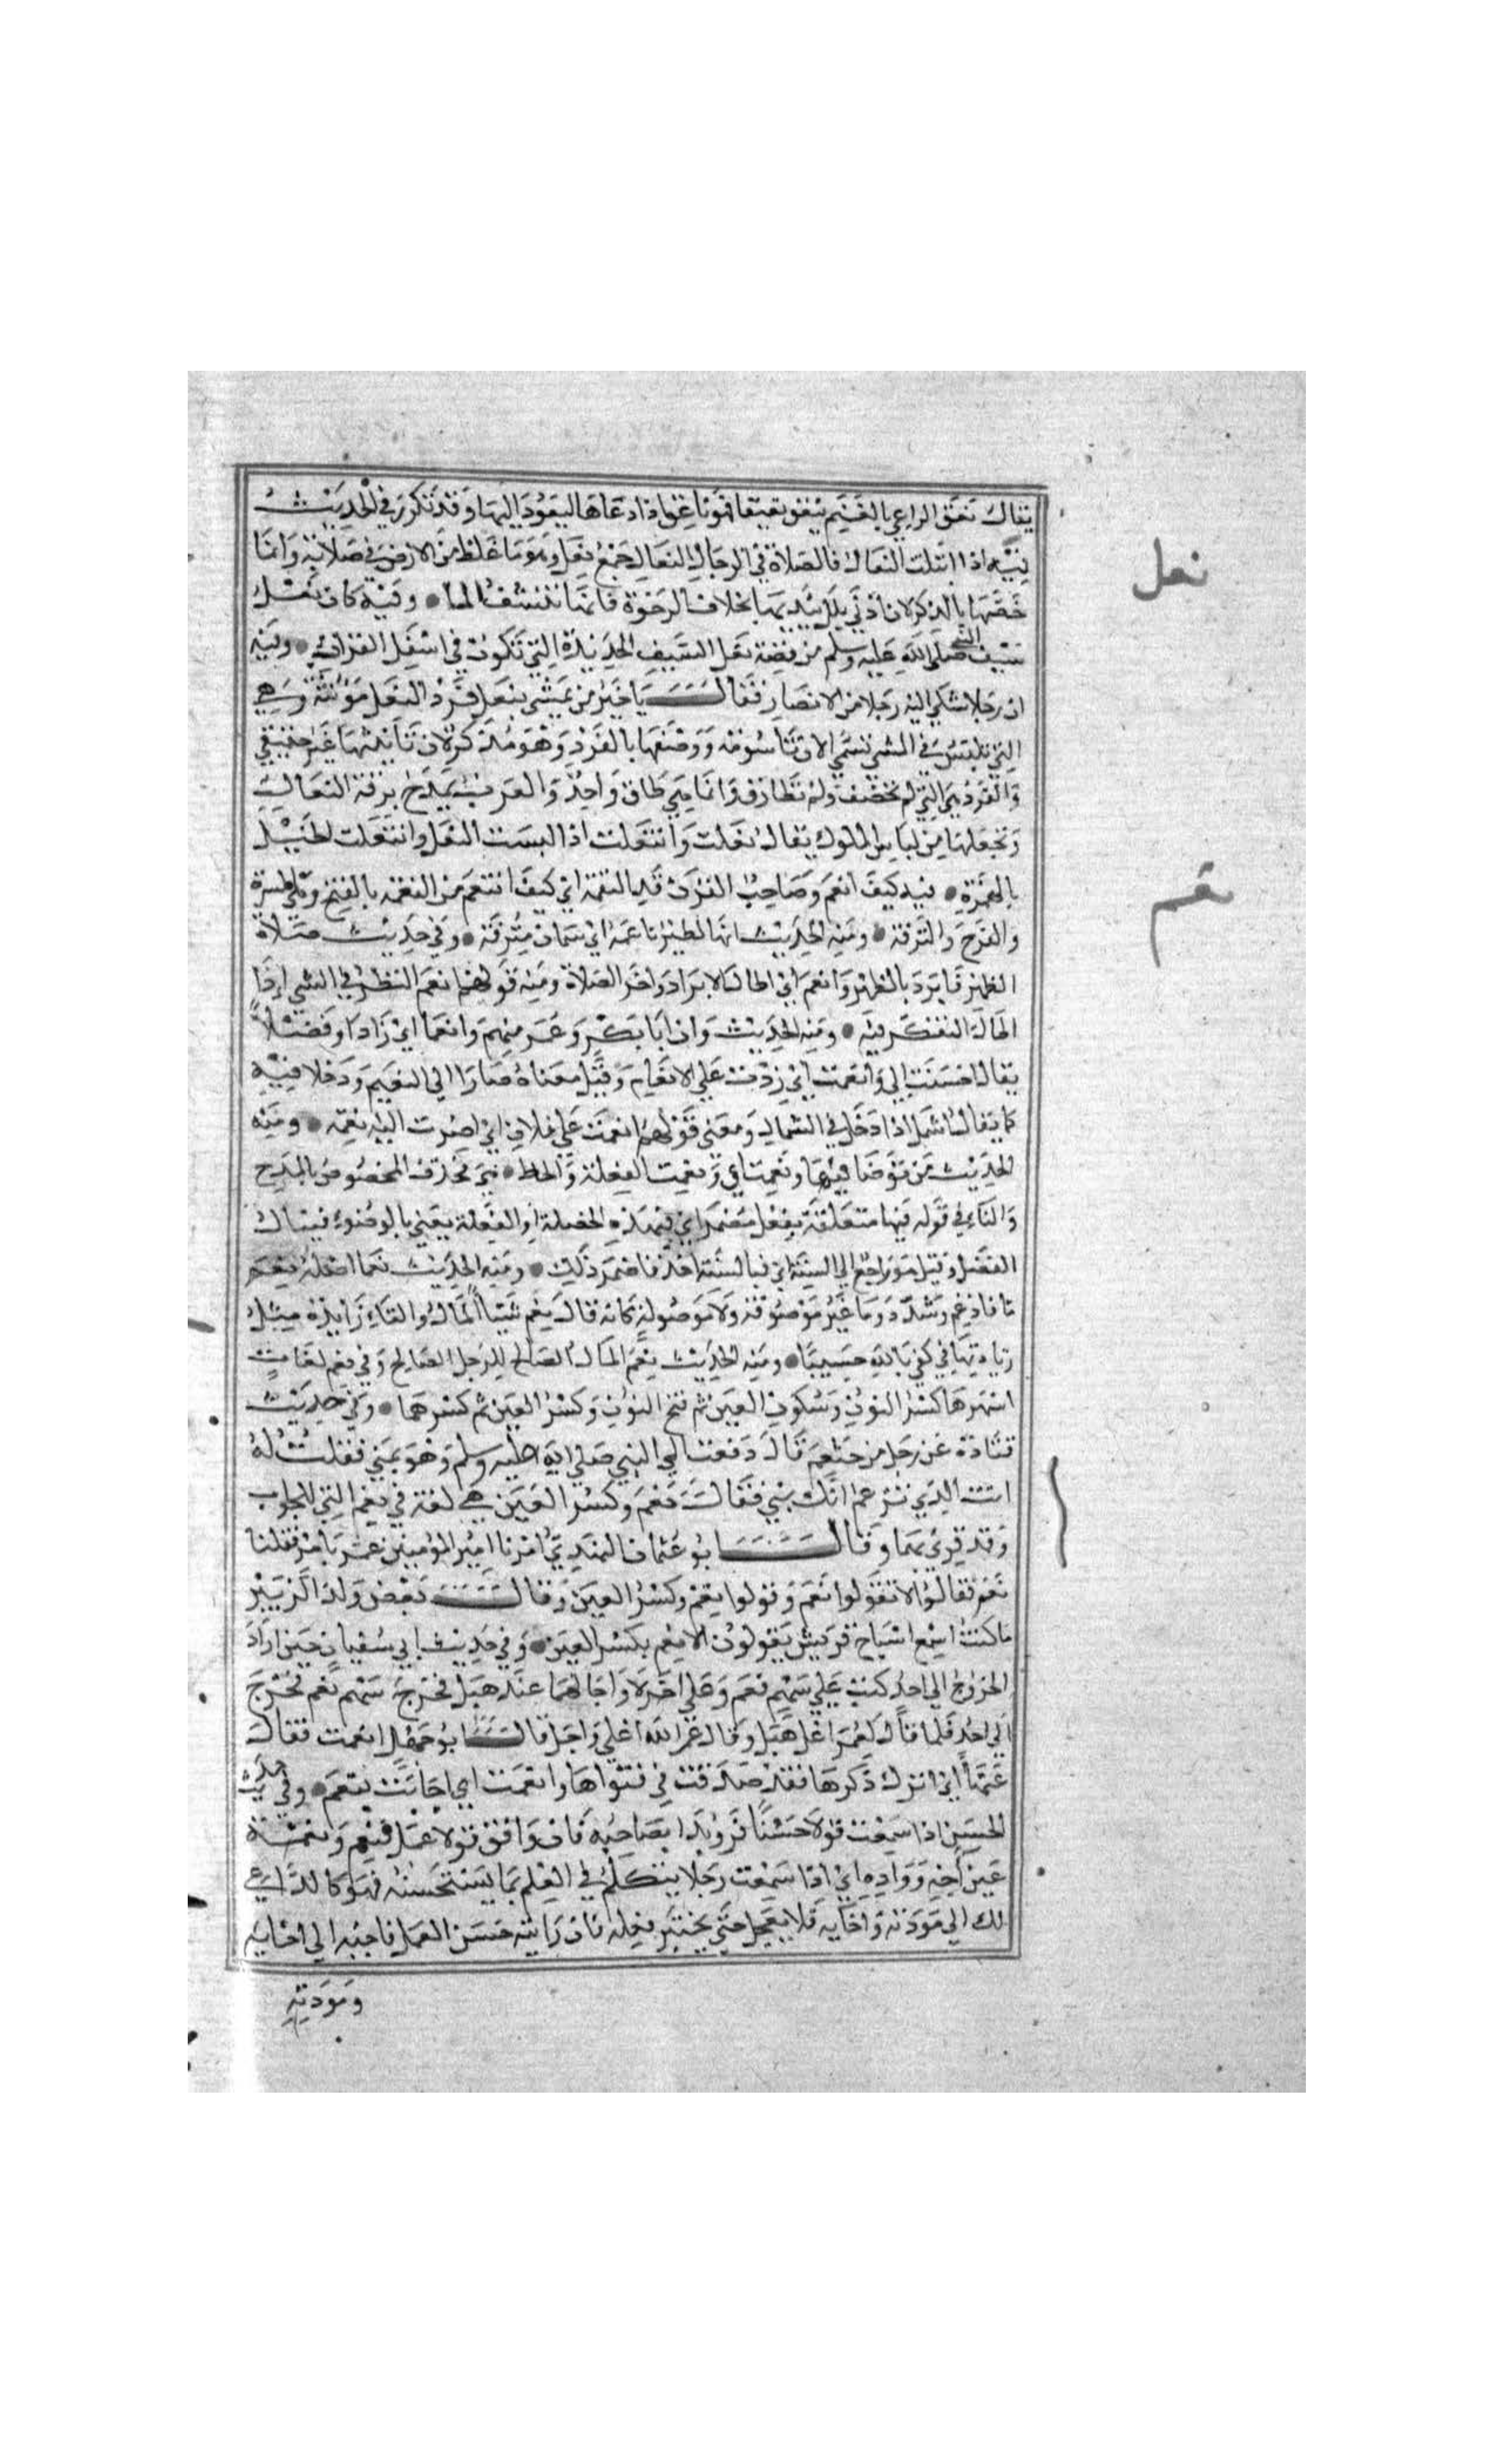 يقال نعق الراعي بالغنم ينعق نعيقا فهو ناعق اذا دعاها لتعود اليه وقد تكرر في الحديث
نعل
فيه اذا ابتلت النعال فالصلاة في الرحال النعال جمع نعل وهو ما غلظ من الارض في صلابة وانما
خصها بالذكر لان ادني بلل ينديها بخلاف الرخوة فانها تنشف الما وفيه كان نعل
سيف النبي صلي الله عليه وسلم من فضة نعل السيف الحديدة التي تكون في اسفل القراب وفيه
ان رجلا شكي اليه رجلا من الانصار فقال يا خير من يمشي بنعل فرد النعل مؤنثة وهي
التي تلبس في المشي تسمي الان تاسومة ووصفها بالفرد وهو مذكر لان تانيثها غير حقيقي
والفرد هي التي لم تخصف ولم تطارق وانما هي طاق واحد والعرب تمدح برقة النعال
وتجعلها من لباس الملوك يقال نعلت وانتعلت اذا لبست النعل وانعلت الخيل
نعم
بالهمزة فيه كيف انعم وصاحب القرن قد التقمه اي كيف اتنعم من النعمة بالفتح وهي المسرة
والفرح والترفه ومنه الحديث انها لطير ناعمة اي سمان مترفة وفي حديث صلاة
الظهر فابرد بالظهر وانعم اي اطال الابراد واخر الصلاة ومنه قولهم انعم النظر في الشي اذا
اطال التفكر فيه ومنه الحديث وان ابا بكر وعمر منهم وانعما اي زادا وفضلا
يقال احسنت الي وانعمت اي زدت علي الانعام وقيل معناه صارا الي النعيم ودخلا فيه
كما يقال اشمل اذا دخل في الشمال ومعني قولهم انعمت علي فلان اي اصرت اليه نعمة ومنه
الحديث من توضا فبها ونعمت اي ونعمت الفعلة والخط نعم فحذف المخصوص بالمدح
والباء في قوله فبها متعلقة بفعل مضمر اي فبهذه الخصلة او الفعلة يعني بالوضوء ينال
الفضل وقيل هو راجع الي السنة اي فبالسنة اخذ فاضمر ذلك ومنه الحديث نعما اصله نعم
ما فادغم وشدد وما غير موصوفة ولا موصولة كانه قال نعم شيئا المال والباء زائدة مثل
زيادتها في كفي بالله حسيبا ومنه الحديث نعم المال الصالح للرجل الصالح وفي نعم لغات
اشهرها كسر النون وسكون العين ثم فتح النون وكسر العين ثم كسرهما وفي حديث
قتادة عن رجل من خثعم قال دفعت الي النبي صلي الله عليه وسلم وهو بمني فقلت له
انت الذي تزعم انك نبي فقال نعم وكسر العين هي لغة في نعم التي للجواب
وقد قرئ بهما وقال ابو عثمان النهدي امرنا امير المؤمنين عمر بامر فقلنا
نعم فقال لا تقولوا نعم وقولوا نعم وكسر العين وقال بعض ولد الزبير
ما كنت اسمع اشياخ قريش يقولون الا نعم بكسر العين وفي حديث ابي سفيان حين اراد
الخروج الي احد كتب علي سهم نعم وعلي اخر لا واجالهما عند هبل فخرج سهم نعم فخرج
الي احد فلما قال لعمر اعل هبل وقال عمر الله اعلي واجل قال ابو انعمت فعال
عنها اي اترك ذكرها فقد صدقت في فتواها وانعمت اي اجابت بنعم وفي حديث
الحسن اذا سمعت قولا حسنا فرويدا بصاحبه فان وافق قول عملا فنعم ونعمة
عين اخه واوده اي اذا سمعت رجلا يتكلم في العلم بما يستحسنه فهو كالداعي
لك الي مودته واخايه فلا تعجل حتي تختبر فعله فان رايته حسن العمل فاجبه الي اخايه
ومودته